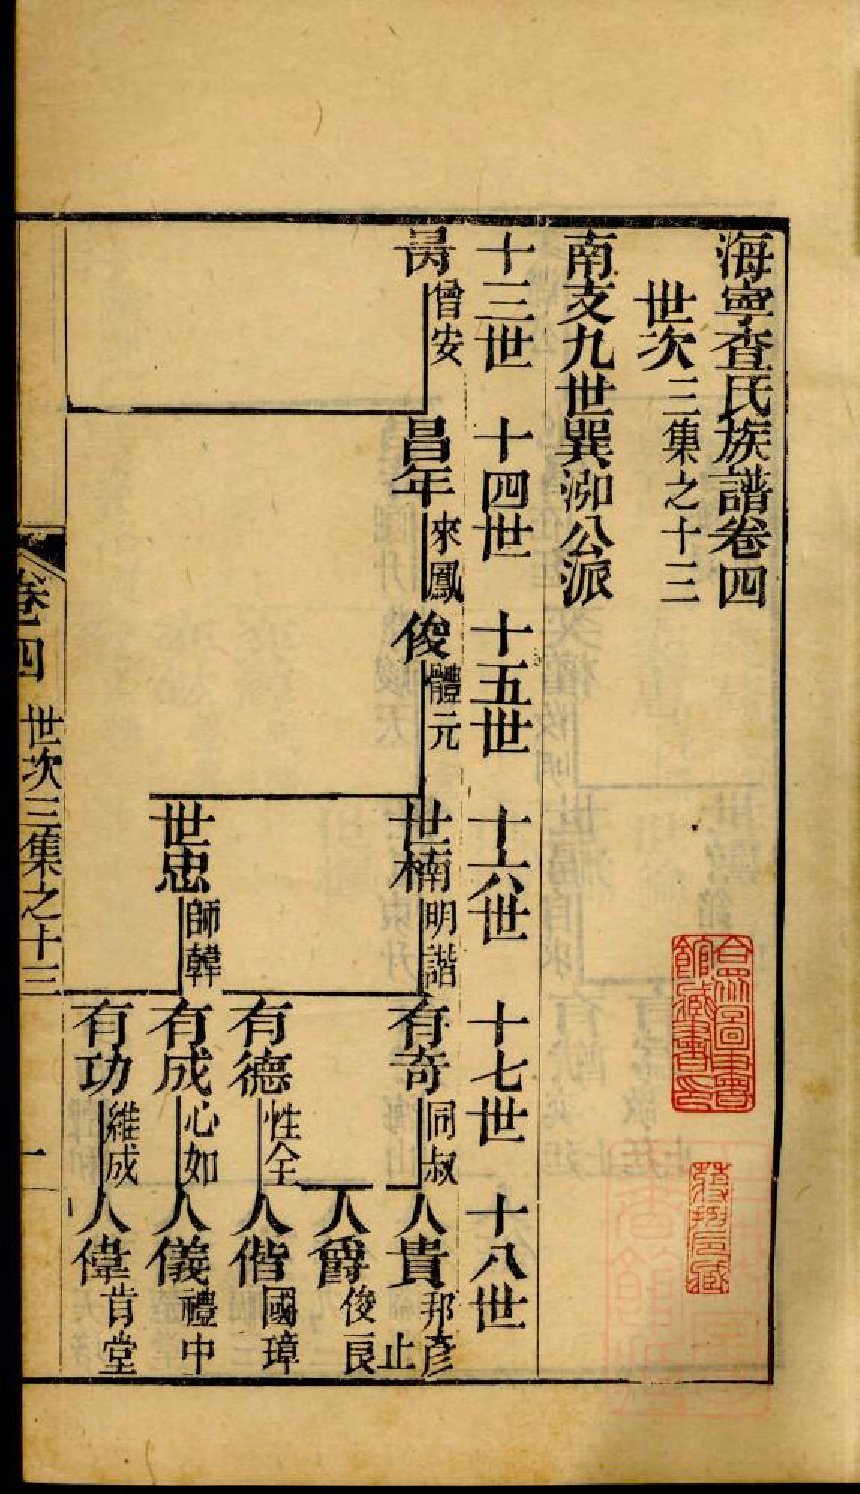 海寧查氏族譜卷四
世次三集之十三
南支九世巽泖公派
十三世 十四世 十五世 十六世 十七世 十八世
曾安
昌年 來鳳
俊 體元
世楠 明諧
有奇 同叔
人貴 邦彥 止
人爵 俊良
有德 性全
人偕 國璋
世忠 師韓
有成 心如
人儀 禮中
有功 維成
人偉 肯堂
卷四 世次三集之十三 一